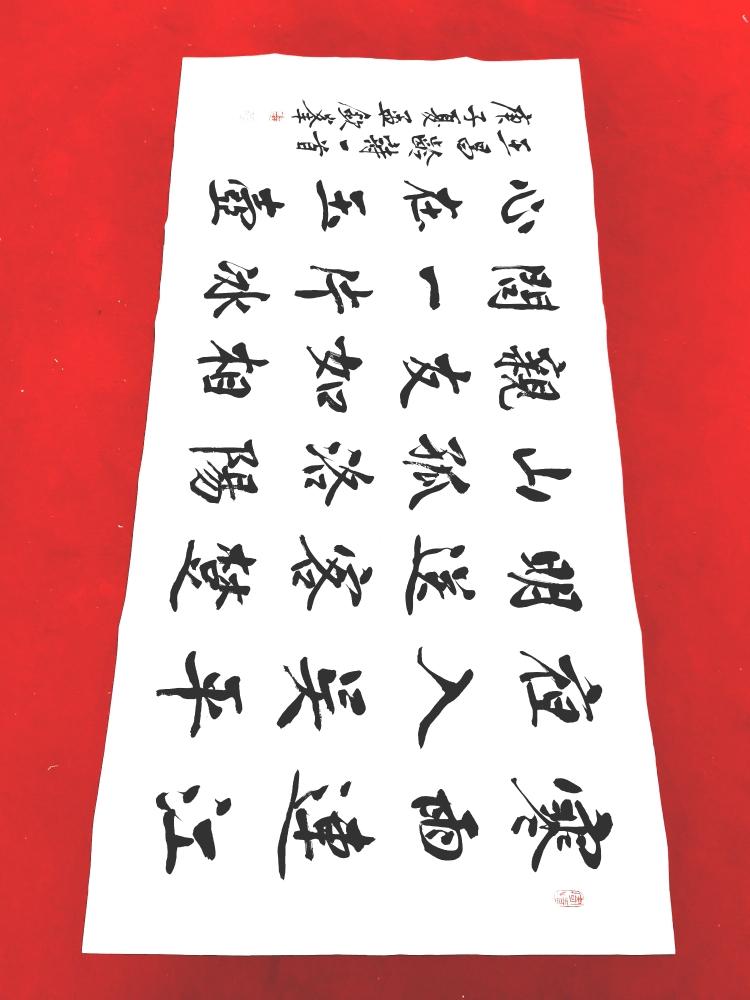 寒雨連江
夜入吳平
明送客楚
山孤洛陽
親友如相
問一片冰
心在玉壺
王昌齡詩一首
庚子夏